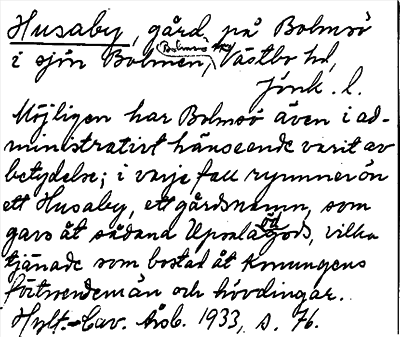 Husaby, gård på Bolmsö
i sjön Bolmen, Bolmsö sn, Västbo hd,
Jönk. l.
Möjligen har Bolmsö även i ad-
ministrativt hänseende varit av
betydelse; i varje fall rymmer ön
ett Husaby, ett gårdsnamn, som
gavs åt sådana Upsala öd gods, vilka
tjänade som bostad åt konungens
förtroendemän och hövdingar.
Hylt.-Cav. Årsb. 1933, s. 76.